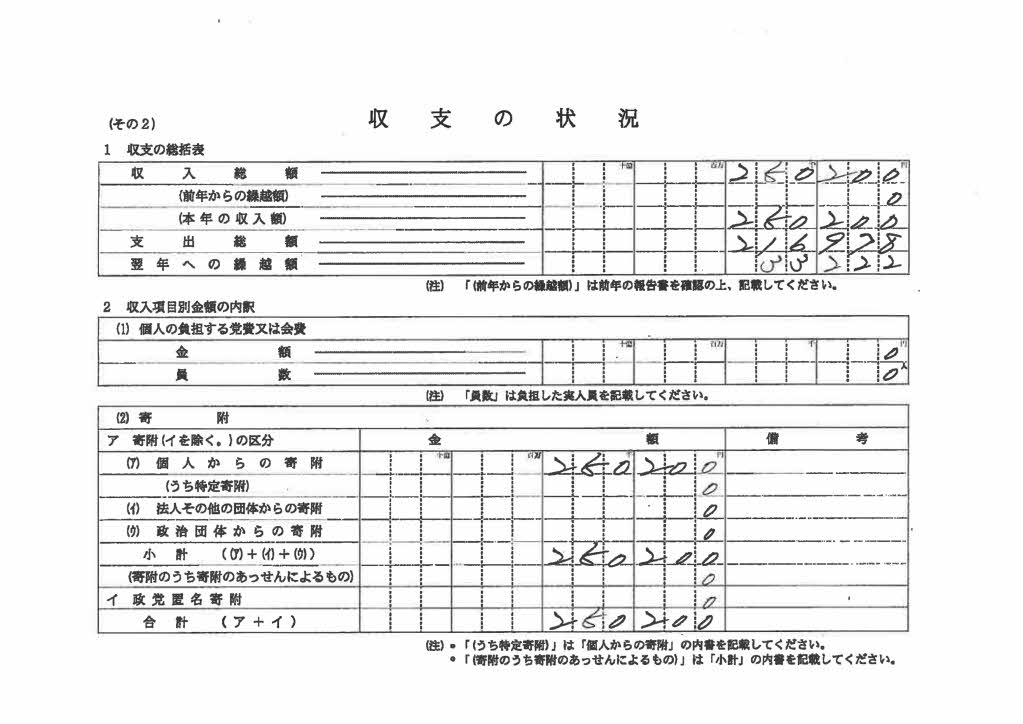 (その2)
収支の状況
1 収支の総括表
十億 百万 千 円
収入総額 250200
(前年からの繰越額) 0
(本年の収入額) 250200
支出総額 216978
翌年への繰越額 33222
(注) 「(前年からの繰越額)」は前年の報告書を確認の上、記載してください。
2 収入項目別金額の内訳
(1) 個人の負担する党費又は会費
十億 百万 千 円
金額 0
員数 0人
(注) 「員数」は負担した実人員を記載してください。
(2) 寄附
ア 寄附(イを除く。)の区分 金額 備考
十億 百万 千 円
(ア) 個人からの寄附 250200
(うち特定寄附) 0
(イ) 法人その他の団体からの寄附 0
(ウ) 政治団体からの寄附 0
小計 ((ア)+(イ)+(ウ)) 250200
(寄附のうち寄附のあっせんによるもの) 0
イ 政党匿名寄附 0
合計 (ア+イ) 250200
(注) •「(うち特定寄附)」は「個人からの寄附」の内書を記載してください。
•「(寄附のうち寄附のあっせんによるもの)」は「小計」の内書を記載してください。